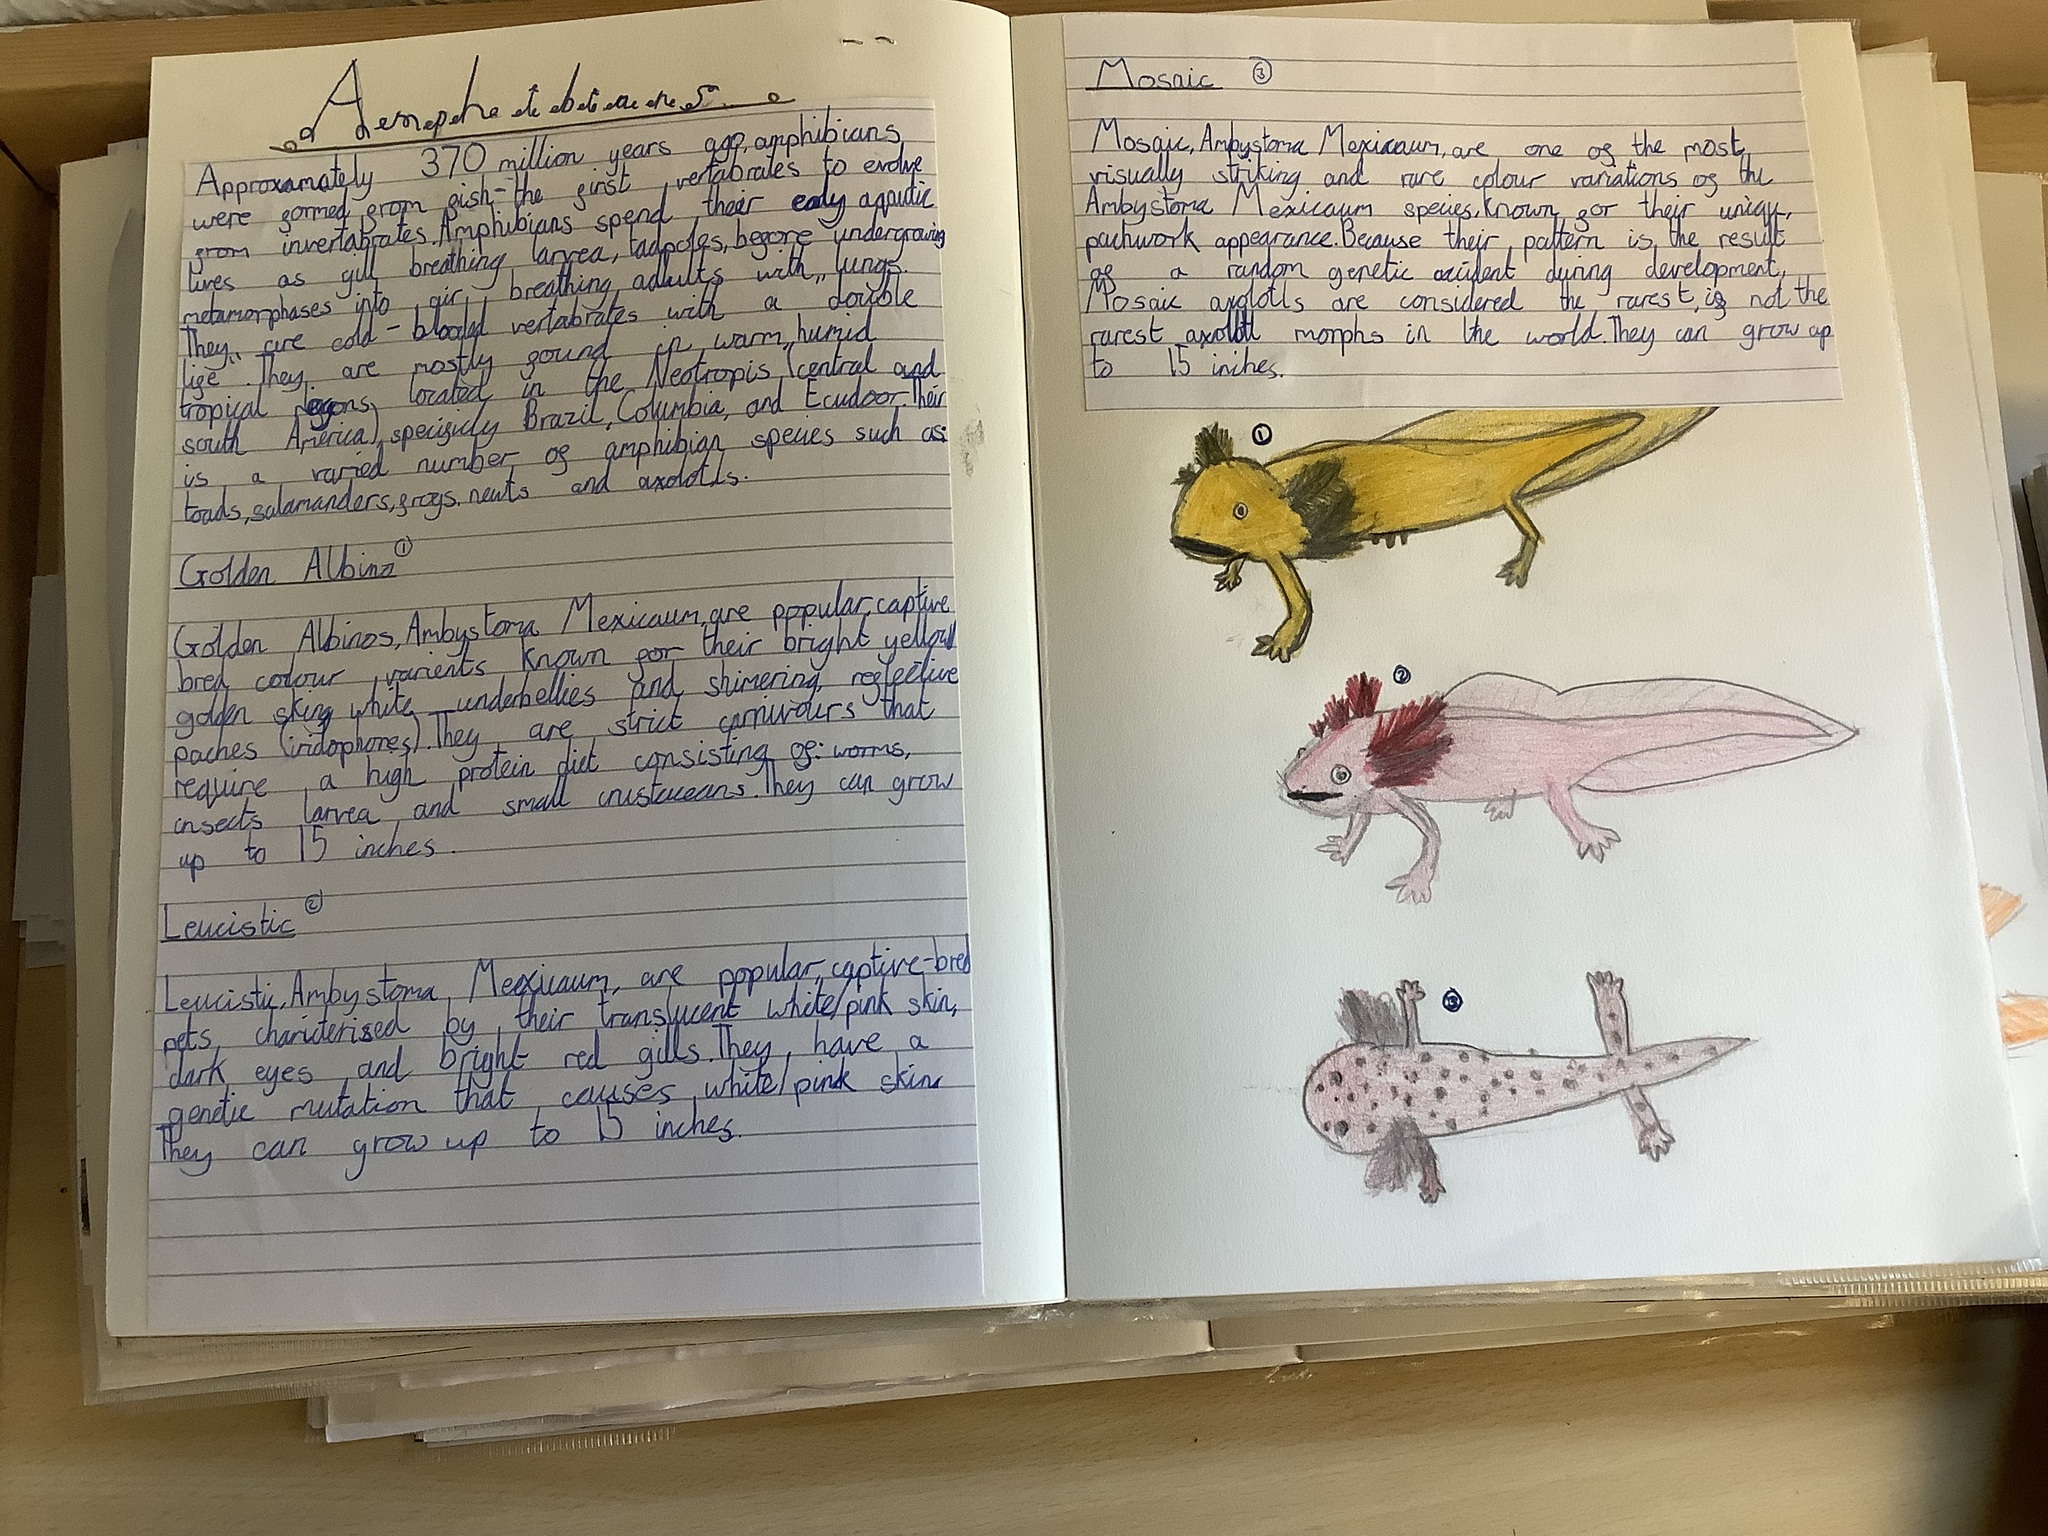 Amphibians
Approxamately 370 million years ago, amphibians
were formed from fish-the first vertabrates to evolve
from invertabrates. Amphibians spend their early aquatic
lives as gill breathing larvea, tadpoles, before undergrowing
metamorphases into air breathing adults with lungs.
They are cold-blooded vertabrates with a "double
life". They are mostly found in warm, humid
tropical regons, located in the Neotropis (central and
south America) specificly Brazil, Columbia, and Ecudoor. Their
is a varied number of amphibian species such as:
toads, salamanders, frogs, newts and axolotls.
Golden Albino ①
Golden Albinos, Ambystoma Mexicaum, are popular, captive
bred colour varients known for their bright yellow/
golden skin, white underbellies and shimering, reflective
paches (iridophores). They are strict carnivours that
require a high protein diet consisting of: worms,
insects larvea and small crustaceans. They can grow
up to 15 inches.
Leucistic ②
Leucistic, Ambystoma Mexicaum, are popular, captive-bred
pets, charicterised by their translucent white/pink skin,
dark eyes and bright red gills. They have a
genetic mutation that causes white/pink skin.
They can grow up to 15 inches.
Mosaic ③
Mosaic, Ambystoma Mexicaum, are one of the most
visually striking and rare colour variations of the
Ambystoma Mexicaum species, known for their uniqu,
pachwork appearance. Because their pattern is the result
of a random genetic axident during development,
Mosaic axolotls are considered the rarest, if not the
rarest axolotl morphs in the world. They can grow up
to 15 inches.
①
②
③